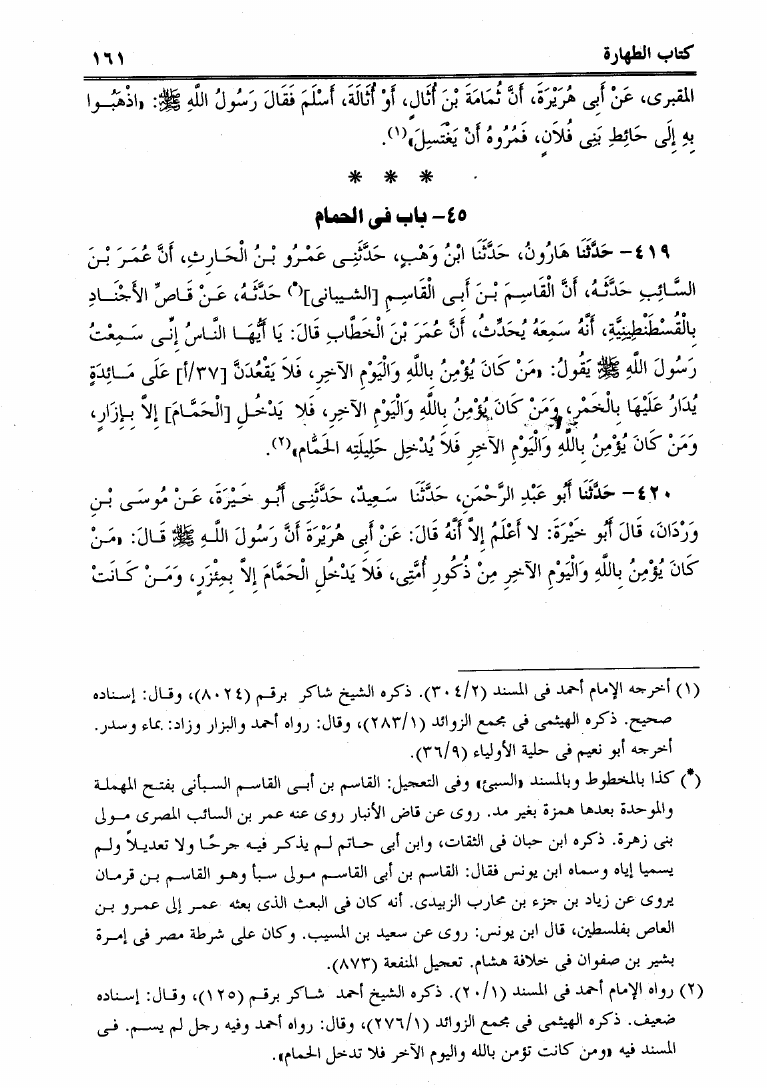 كتاب الطهارة ١٦١
المقبرى، عَنْ أَبِى هُرَيْرَةَ، أَنَّ ثُمَامَةَ بْنَ أُثَالٍ، أَوْ أُثَالَةَ، أَسْلَمَ فَقَالَ رَسُولُ اللَّهِ ﷺ: «اذْهَبُوا
بِهِ إِلَى حَائِطِ بَنِى فُلاَنٍ، فَمُرُوهُ أَنْ يَغْتَسِلَ»(١).
* * *
٤٥- باب فى الحمام
٤١٩- حَدَّثَنَا هَارُونُ، حَدَّثَنَا ابْنُ وَهْبٍ، حَدَّثَنِى عَمْرُو بْنُ الْحَارِثِ، أَنَّ عُمَرَ بْنَ
السَّائِبِ حَدَّثَهُ، أَنَّ الْقَاسِمَ بْنَ أَبِى الْقَاسِمِ [الشيبانى](*) حَدَّثَهُ، عَنْ قَاصِّ الأَجْنَادِ
بِالْقُسْطَنْطِينِيَّةِ، أَنَّهُ سَمِعَهُ يُحَدِّثُ، أَنَّ عُمَرَ بْنَ الْخَطَّابِ قَالَ: يَا أَيُّهَا النَّاسُ إِنِّى سَمِعْتُ
رَسُولَ اللَّهِ ﷺ يَقُولُ: «مَنْ كَانَ يُؤْمِنُ بِاللَّهِ وَالْيَوْمِ الآخِرِ، فَلاَ يَقْعُدَنَّ [٣٧/أ] عَلَى مَائِدَةٍ
يُدَارُ عَلَيْهَا بِالْخَمْرِ، وَمَنْ كَانَ يُؤْمِنُ بِاللَّهِ وَالْيَوْمِ الآخِرِ، فَلاَ يَدْخُلِ [الْحَمَّامَ] إِلاَّ بِإِزَارٍ،
وَمَنْ كَانَ يُؤْمِنُ بِاللَّهِ وَالْيَوْمِ الآخِرِ فَلاَ يُدْخِل حَلِيلَته الحَمَّام»(٢).
٤٢٠- حَدَّثَنَا أَبُو عَبْدِ الرَّحْمَنِ، حَدَّثَنَا سَعِيدٌ، حَدَّثَنِى أَبُو خَيْرَةَ، عَنْ مُوسَى بْنِ
وَرْدَانَ، قَالَ أَبُو خَيْرَةَ: لا أَعْلَمُ إِلاَّ أَنَّهُ قَالَ: عَنْ أَبِى هُرَيْرَةَ أَنَّ رَسُولَ اللَّهِ ﷺ قَالَ: «مَنْ
كَانَ يُؤْمِنُ بِاللَّهِ وَالْيَوْمِ الآخِرِ مِنْ ذُكُورِ أُمَّتِى، فَلاَ يَدْخُلِ الْحَمَّامَ إِلاَّ بِمِئْزَرٍ، وَمَنْ كَانَتْ
(١) أخرجه الإمام أحمد فى المسند (٣٠٤/٢). ذكره الشيخ شاكر برقم (٨٠٢٤)، وقال: إسناده
صحيح. ذكره الهيثمى فى مجمع الزوائد (٢٨٣/١)، وقال: رواه أحمد والبزار وزاد: بماء وسدر.
أخرجه أبو نعيم فى حلية الأولياء (٣٦/٩).
(*) كذا بالمخطوط وبالمسند «السبئ» وفى التعجيل: القاسم بن أبى القاسم السبأنى بفتح المهملة
والموحدة بعدها همزة بغير مد. روى عن قاض الأنبار روى عنه عمر بن السائب المصرى مولى
بنى زهرة. ذكره ابن حبان فى الثقات، وابن أبى حاتم لم يذكر فيه جرحًا ولا تعديلاً ولم
يسميا إياه وسماه ابن يونس فقال: القاسم بن أبى القاسم مولى سبأ وهو القاسم بن قرمان
يروى عن زياد بن جزء بن محارب الزبيدى. أنه كان فى البعث الذى بعثه عمر إلى عمرو بن
العاص بفلسطين، قال ابن يونس: روى عن سعيد بن المسيب. وكان على شرطة مصر فى إمرة
بشير بن صفوان فى خلافة هشام. تعجيل المنفعة (٨٧٣).
(٢) رواه الإمام أحمد فى المسند (٢٠/١). ذكره الشيخ أحمد شاكر برقم (١٢٥)، وقال: إسناده
ضعيف. ذكره الهيثمى فى مجمع الزوائد (٢٧٦/١)، وقال: رواه أحمد وفيه رجل لم يسم. فى
المسند فيه «ومن كانت تؤمن بالله واليوم الآخر فلا تدخل الحمام».